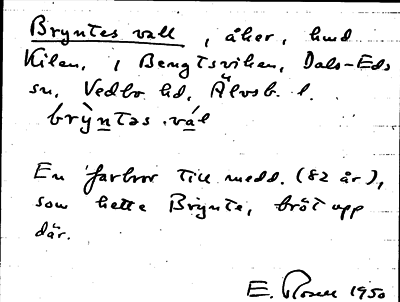 Bryntes vall, åker, hmd
Kilen, i Bengtsviken, Dals-Eds
sn, Vedbo hd, Älvsb. l.
brỳntəs .vál
En farbror till medd. (82 år),
som hette Brynte, bröt upp
där.
E. Rosell 1950